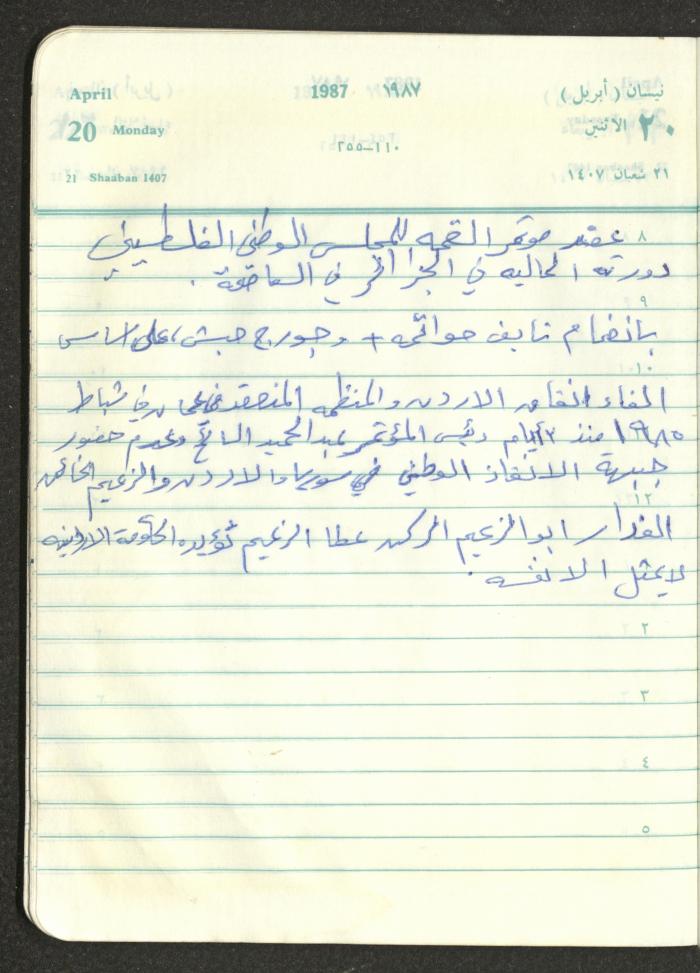 April 1987 ١٩٨٧ نيسان (أبريل)
20 Monday ٢٠ الاثنين
١١٠-٢٥٥
21 Shaaban 1407 ٢١ شعبان ١٤٠٧
٨ عقد مؤتمر القمه للمجلس الوطني الفلسطيني
دورته الحاليه في الجزائر في العاصمة .
٩
بانضمام نايف حواتمه + وجورج حبش، على اساس
١٠
الغاء اتفاق الاردن والمنظمه المنعقد في عمان في شباط
١٩٨٥ منذ ٣ أيام رئيس المؤتمر عبد الحميد السائح وعدم حضور
جبهة الانقاذ الوطني في سوريا والاردن والزعيم الخائن
١٢
الغدار ابو الزعيم الركن عطا الزعيم تؤيده الحكومة الاردنيه
لا يمثل الا نفسه .
٢
٣
٤
٥